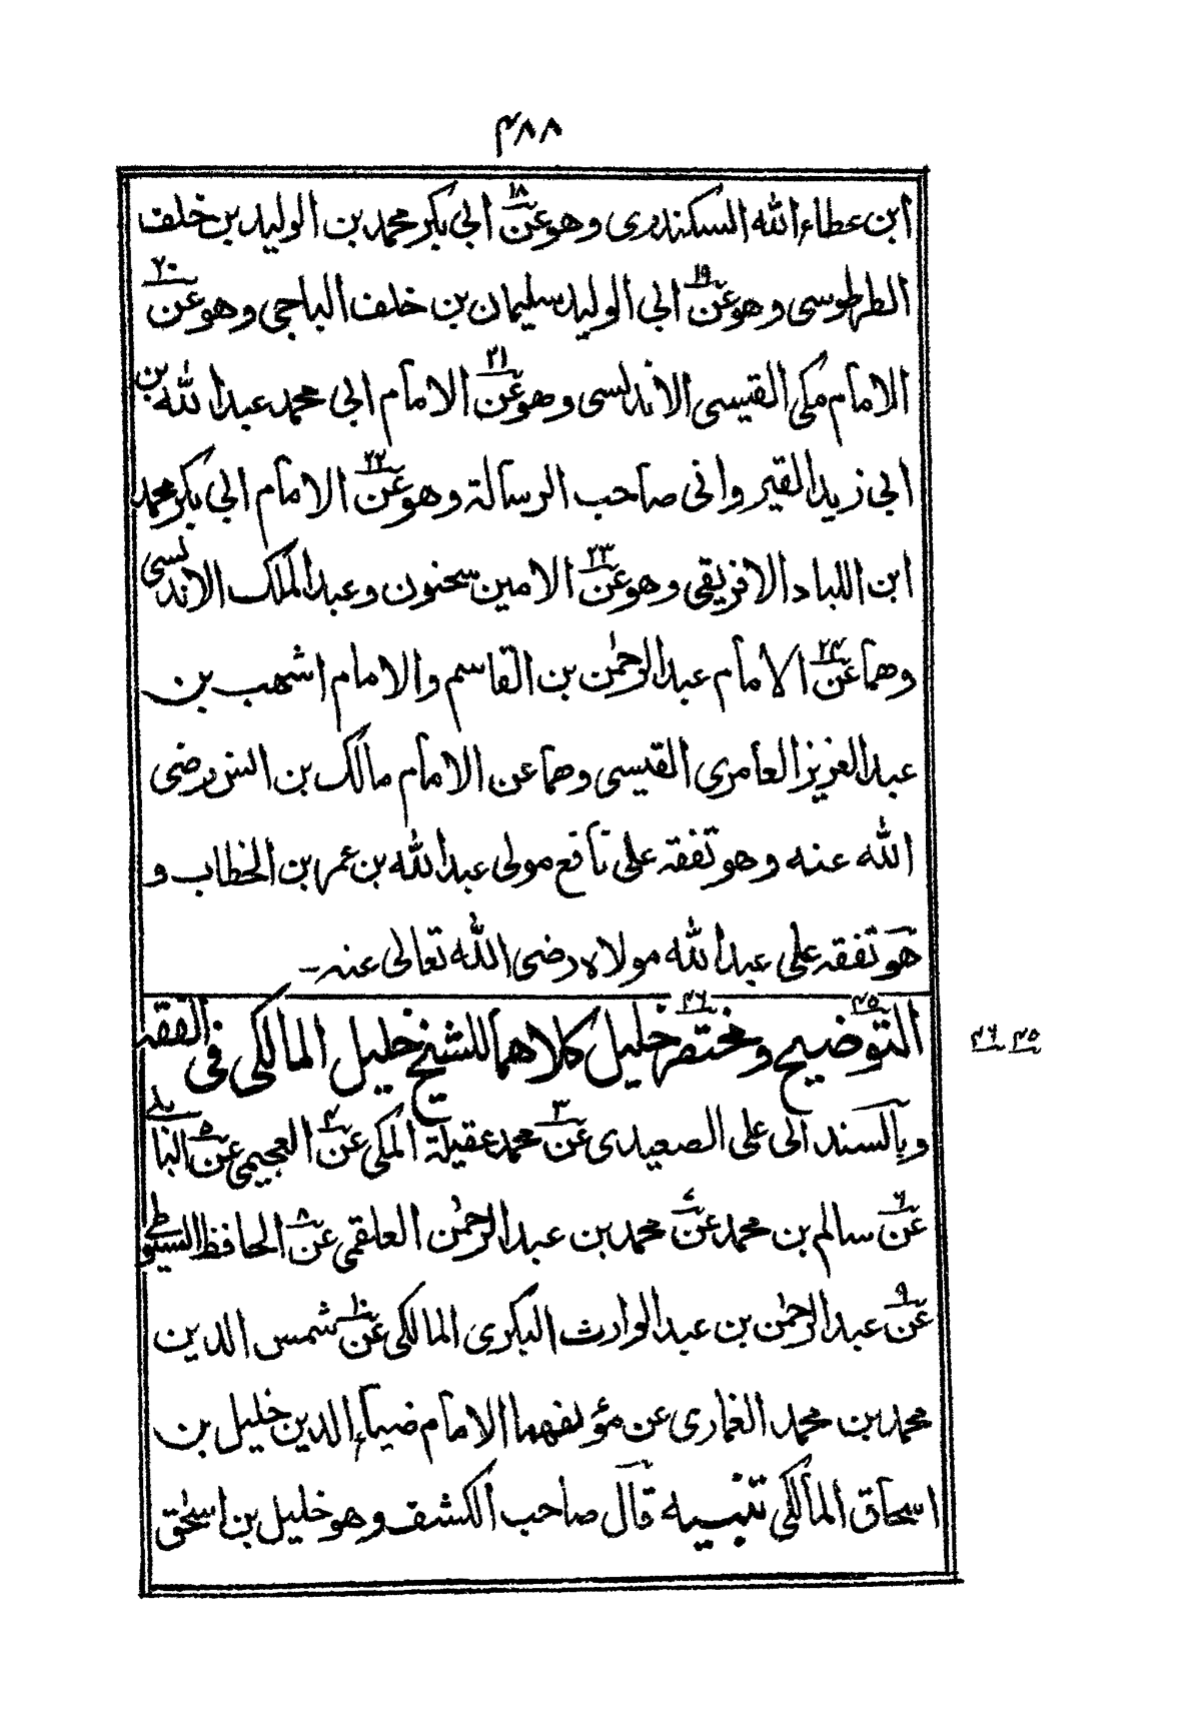 ۴۸۸
ابن عطاء الله السكندرى وهو عن ۱۸ ابى بكر محمد بن الوليد بن خلف
الطرطوسى وهو عن ۱۹ ابى الوليد سليمان بن خلف الباجى وهو عن ۲۰
الامام مكى القيسى الاندلسى وهو عن ۲۱ الامام ابى محمد عبد الله بن
ابى زيد القيروانى صاحب الرسالة وهو عن ۲۲ الامام ابى بكر محمد
ابن اللباد الافريقى وهو عن ۲۳ الامين سحنون وعبد الملك الاندلسى
وهما عن ۲۴ الامام عبد الرحمٰن بن القاسم والامام اشهب بن
عبد العزيز العامرى القيسى وهما عن الامام مالك بن انس رضى
الله عنه وهو تفقه على نافع مولى عبد الله بن عمر بن الخطاب و
هو تفقه على عبد الله مولاه رضى الله تعالى عنه ــ
التوضيح ۴۵ ومختصر خليل ۴۶ كلاهما للشيخ خليل المالكى فى الفقه
۴۵ ۴۶
وبالسند الى على الصعيدى عن ۳ محمد عقيلة المكى عن ۴ العجيمى عن ۵ البنا
عن ۶ سالم بن محمد عن ۷ محمد بن عبد الرحمٰن العلقمى عن ۸ الحافظ السيوطى
عن ۹ عبد الرحمٰن بن عبد الوارث البكرى المالكى عن ۱۰ شمس الدين
محمد بن محمد الغمارى عن مؤلفهما الامام ضياء الدين خليل بن
اسحاق المالكى تنبيه قال صاحب الكشف وهو خليل بن اسحٰق